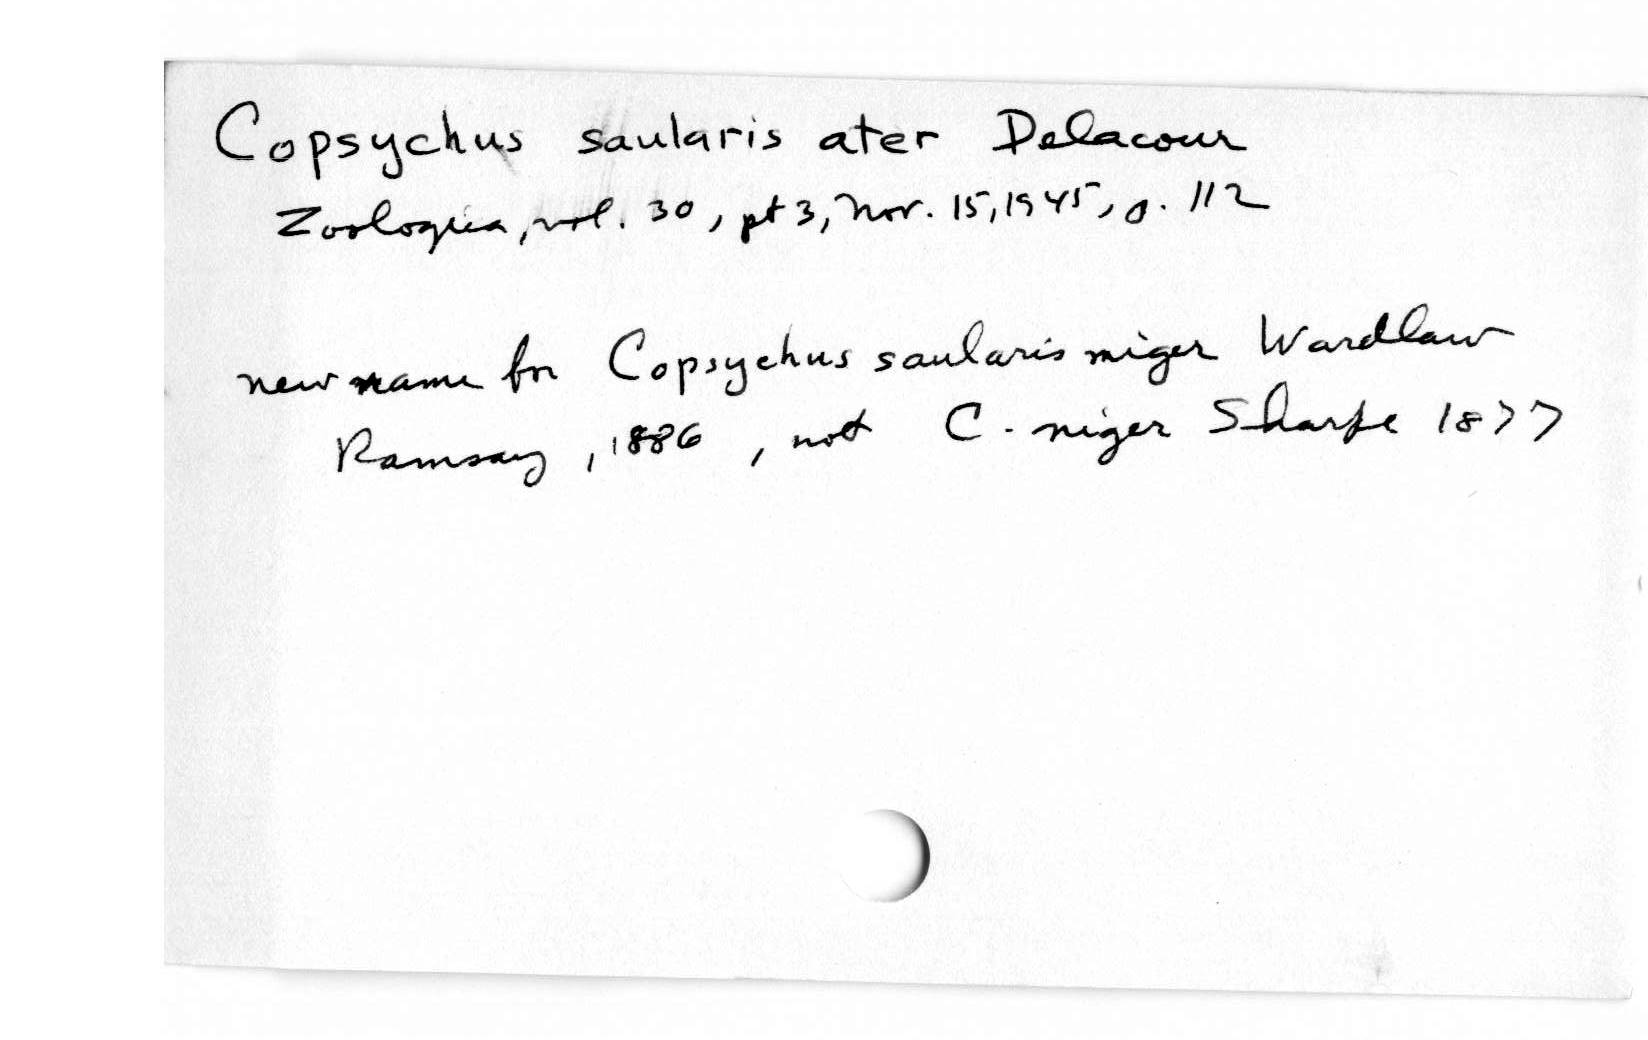 Copsychus saularis ater Delacour
Zoologica, vol. 30, pt 3, Nov. 15, 1945, p. 112
new name for Copsychus saularis niger Wardlaw
Ramsay, 1886, not C. niger Sharpe 1877